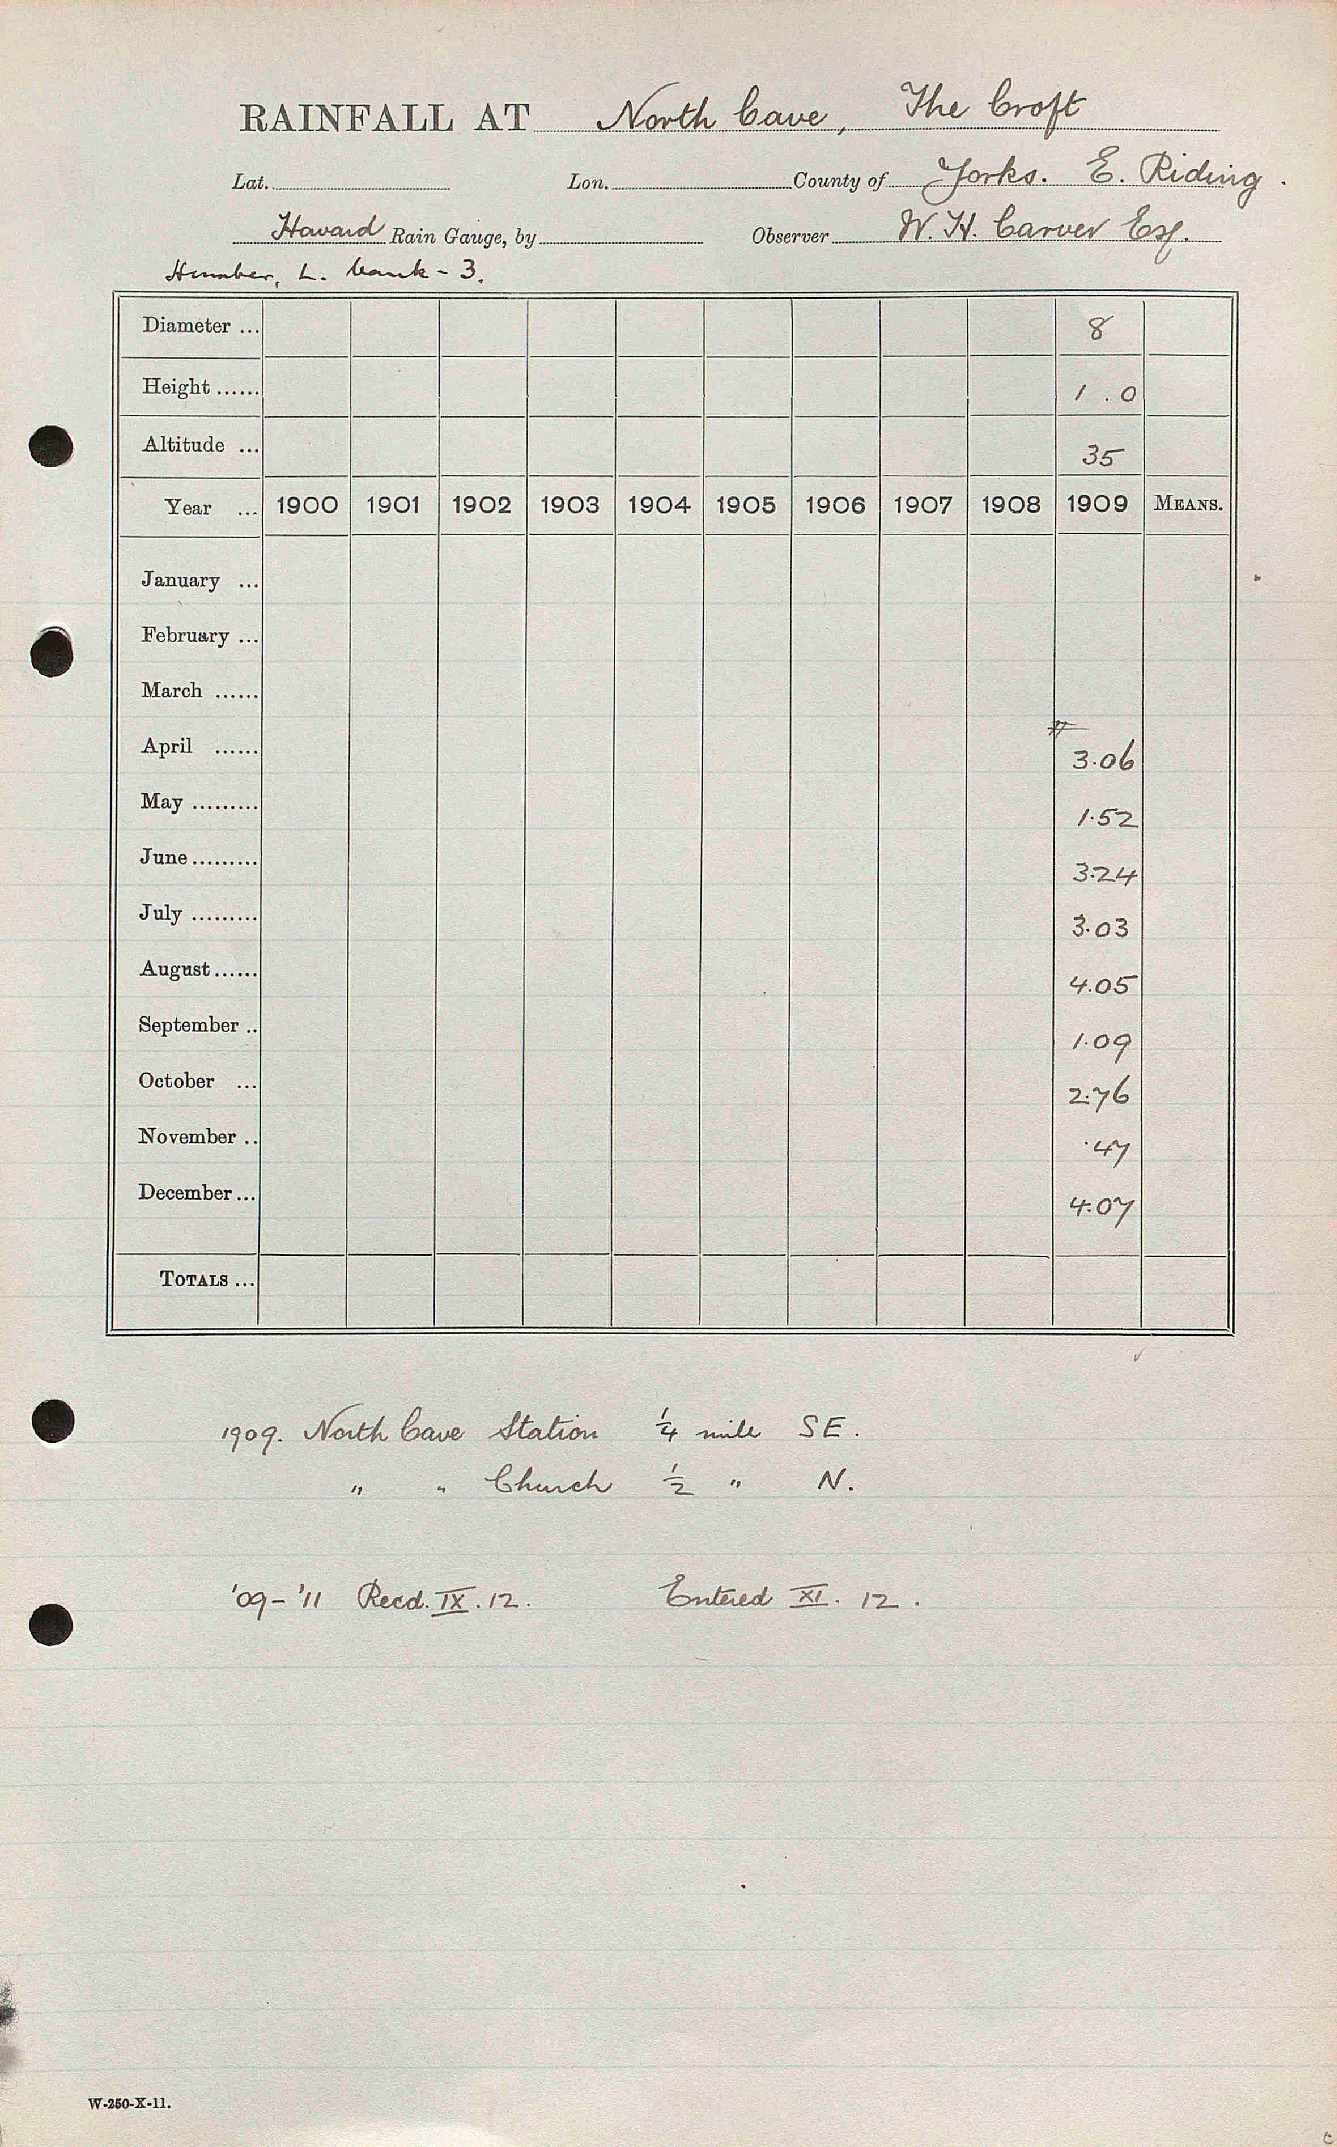 RAINFALL AT North Cave, The Croft
Lat. Lon. County of Yorks. E. Riding.
Howard Rain Gauge, by Observer W. H. Carver Esq.
Humber, L. bank - 3.
Diameter ... 8
Height ...... 1 . 0
Altitude ... 35
Year ... 1900 1901 1902 1903 1904 1905 1906 1907 1908 1909 MEANS.
January ...
February ...
March ......
April ...... 3.06
May ......... 1.52
June ......... 3.24
July ......... 3.03
August ...... 4.05
September .. 1.09
October ... 2.76
November .. .47
December ... 4.07
TOTALS ...
1909. North Cave Station ¼ mile SE.
" " Church ½ " N.
'09-'11 Recd. IX. 12. Entered XI. 12.
W-250-X-11.